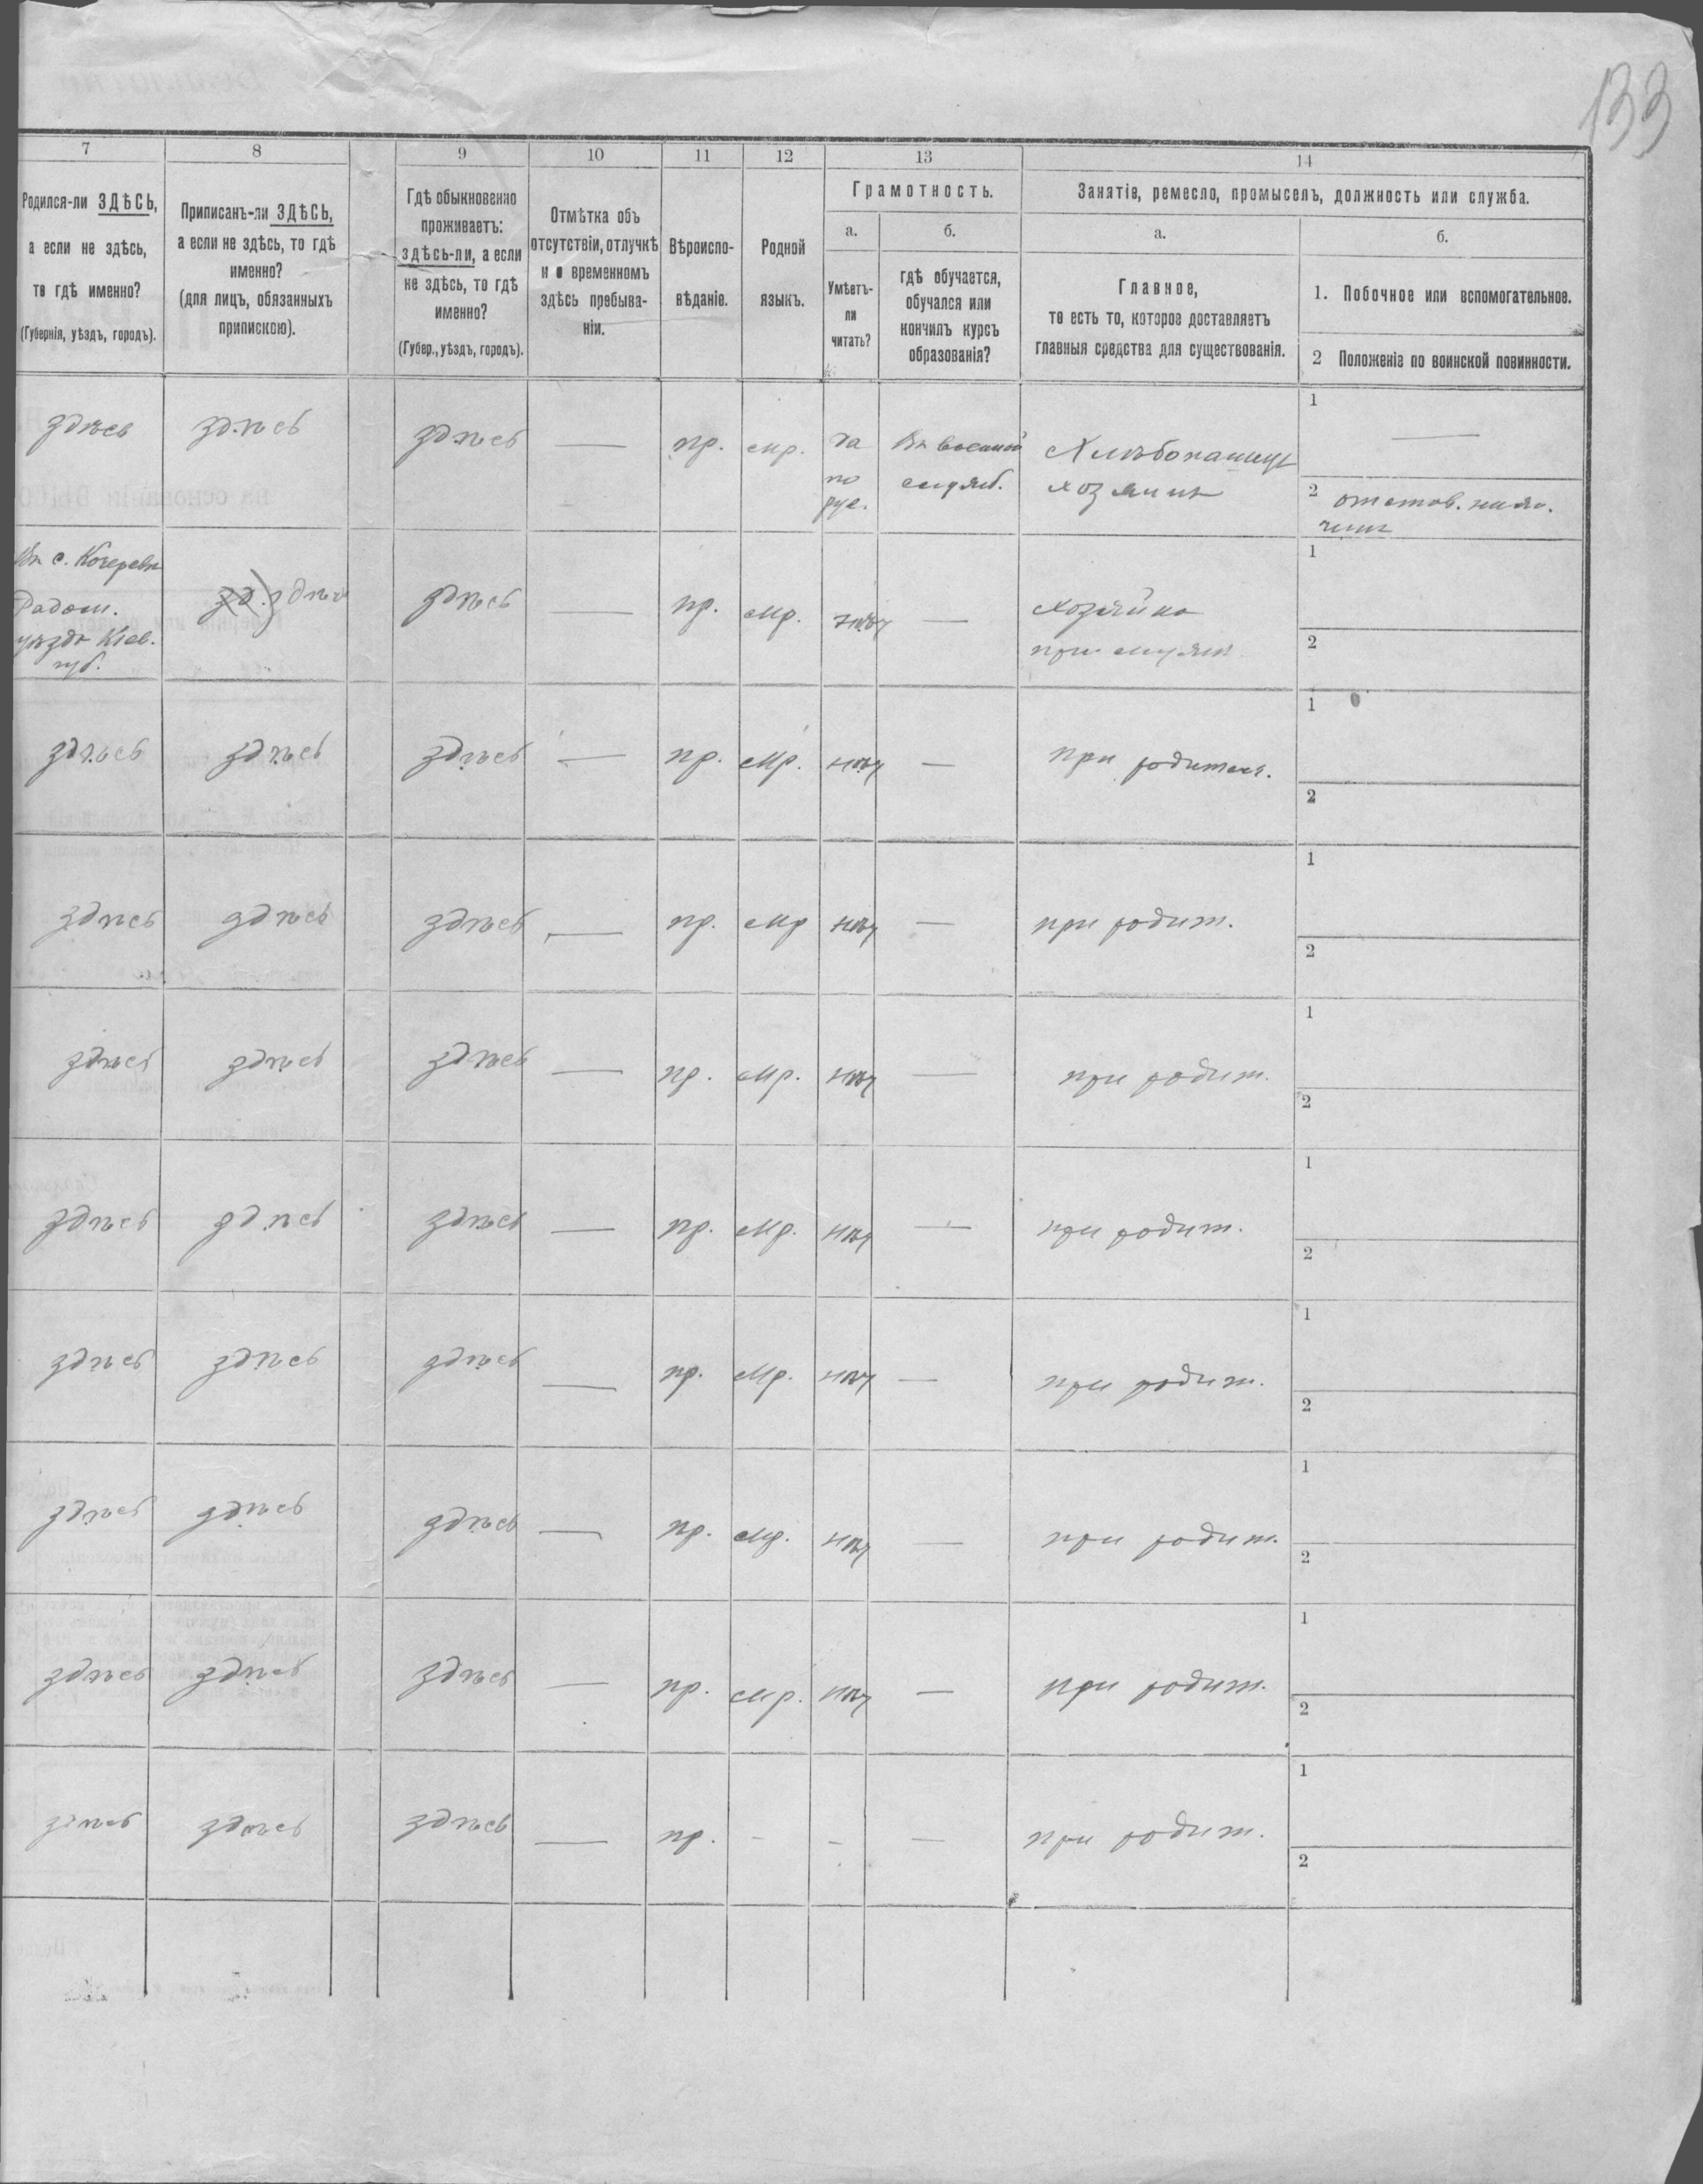 133
7 8 9 10 11 12 13 14
Родился-ли ЗДѢСЬ,
а если не здѣсь,
то гдѣ именно?
(Губернія, уѣздъ, городъ).
Приписанъ-ли ЗДѢСЬ,
а если не здѣсь, то гдѣ
именно?
(для лицъ, обязанныхъ
припискою).
Гдѣ обыкновенно
проживаетъ:
здѣсь-ли, а если
не здѣсь, то гдѣ
именно?
(Губер., уѣздъ, городъ).
Отмѣтка объ
отсутствіи, отлучкѣ
и о временномъ
здѣсь пребыва-
ніи.
Вѣроиспо-
вѣданіе.
Родной
языкъ.
Грамотность.
а.
Умѣетъ-
ли
читать?
б.
гдѣ обучается,
обучался или
кончилъ курсъ
образованія?
Занятіе, ремесло, промыселъ, должность или служба.
а.
Главное,
то есть то, которое доставляетъ
главныя средства для существованія.
б.
1. Побочное или вспомогательное.
2 Положеніе по воинской повинности.
здѣсь
здѣсь
здѣсь
—
пр.
мр.
да
по
рус.
Въ военной
служб.
Хлѣбопашецъ
хозяинъ
1 —
2 отстав.
чинъ
Въ с. Кочеровѣ
Радом.
уѣзда Кіев.
губ.
зд. здѣсь
здѣсь
—
пр.
мр.
нѣт
—
хозяйка
при мужѣ
1
2
здѣсь здѣсь здѣсь — пр. мр. нѣт — при родител.
1
2
здѣсь здѣсь здѣсь — пр. мр нѣт — при родит.
1
2
здѣсь здѣсь здѣсь — пр. мр. нѣт — при родит.
1
2
здѣсь здѣсь здѣсь — пр. мр. нѣт — при родит.
1
2
здѣсь здѣсь здѣсь — пр. мр. нѣт — при родит.
1
2
здѣсь здѣсь здѣсь — пр. мр. нѣт — при родит.
1
2
здѣсь здѣсь здѣсь — пр. мр. нѣт — при родит.
1
2
здѣсь здѣсь здѣсь — пр. - - — при родит.
1
2